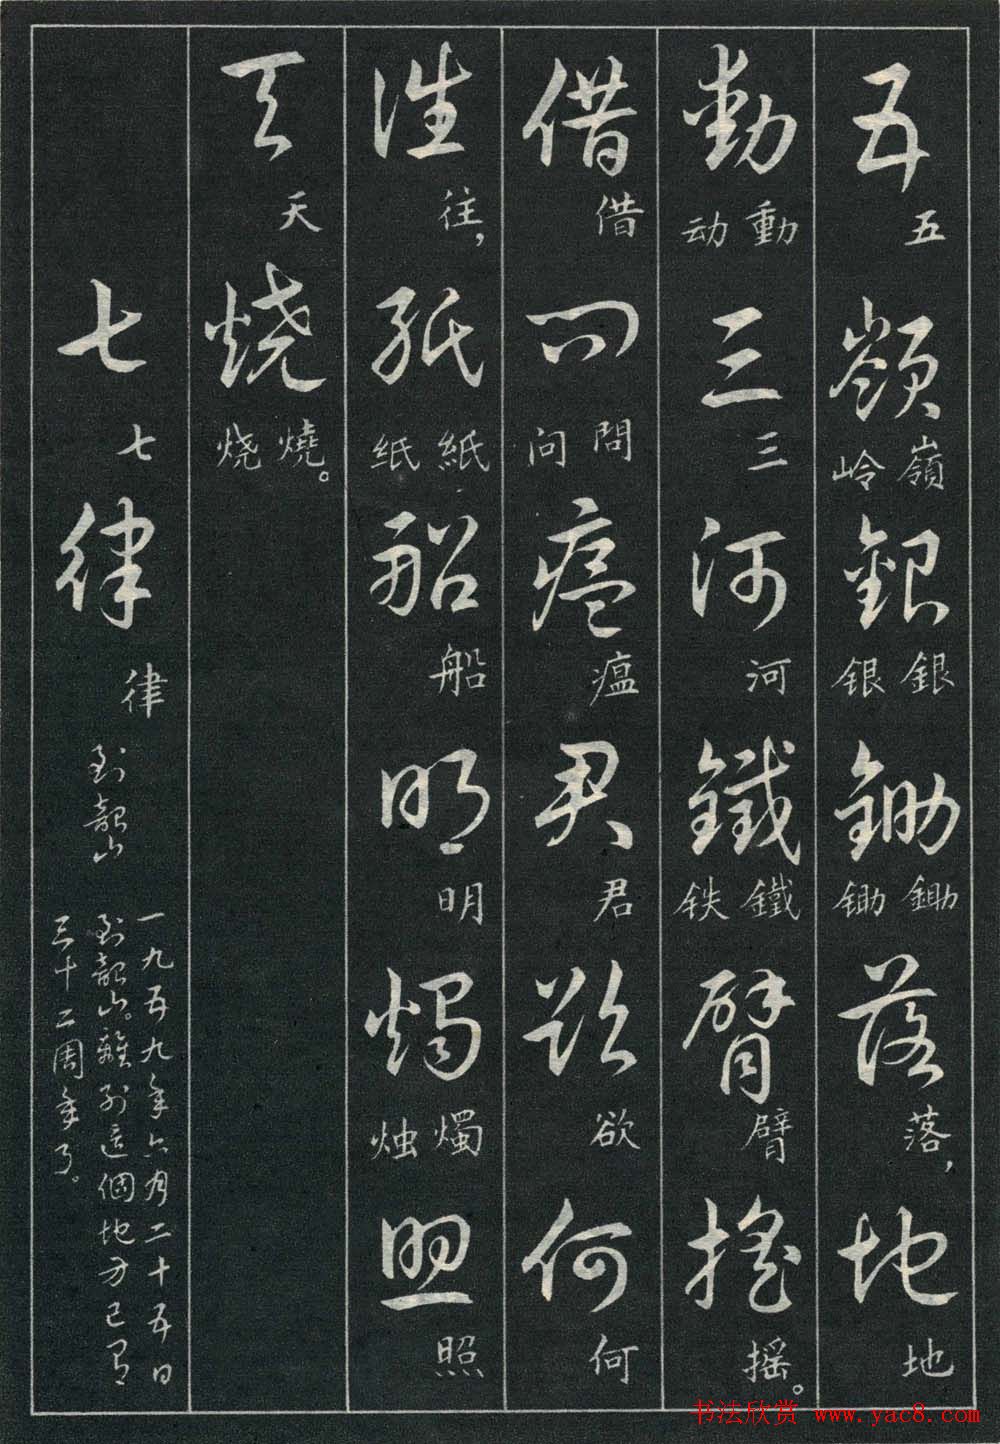 五嶺銀鋤落地
五
嶺岭
銀银
鋤锄
落,
地
動三河鐵臂搖
動动
三
河
鐵铁
臂
摇。
借问瘟君欲何
借
問问
瘟
君
欲
何
往紙船明燭照
往,
紙纸
船
明
燭烛
照
天燒
天
燒烧。
七律
七
律
到韶山
一九五九年六月二十五日
到韶山。離别這個地方已有
三十二周年了。
书法欣赏 www.yac8.com